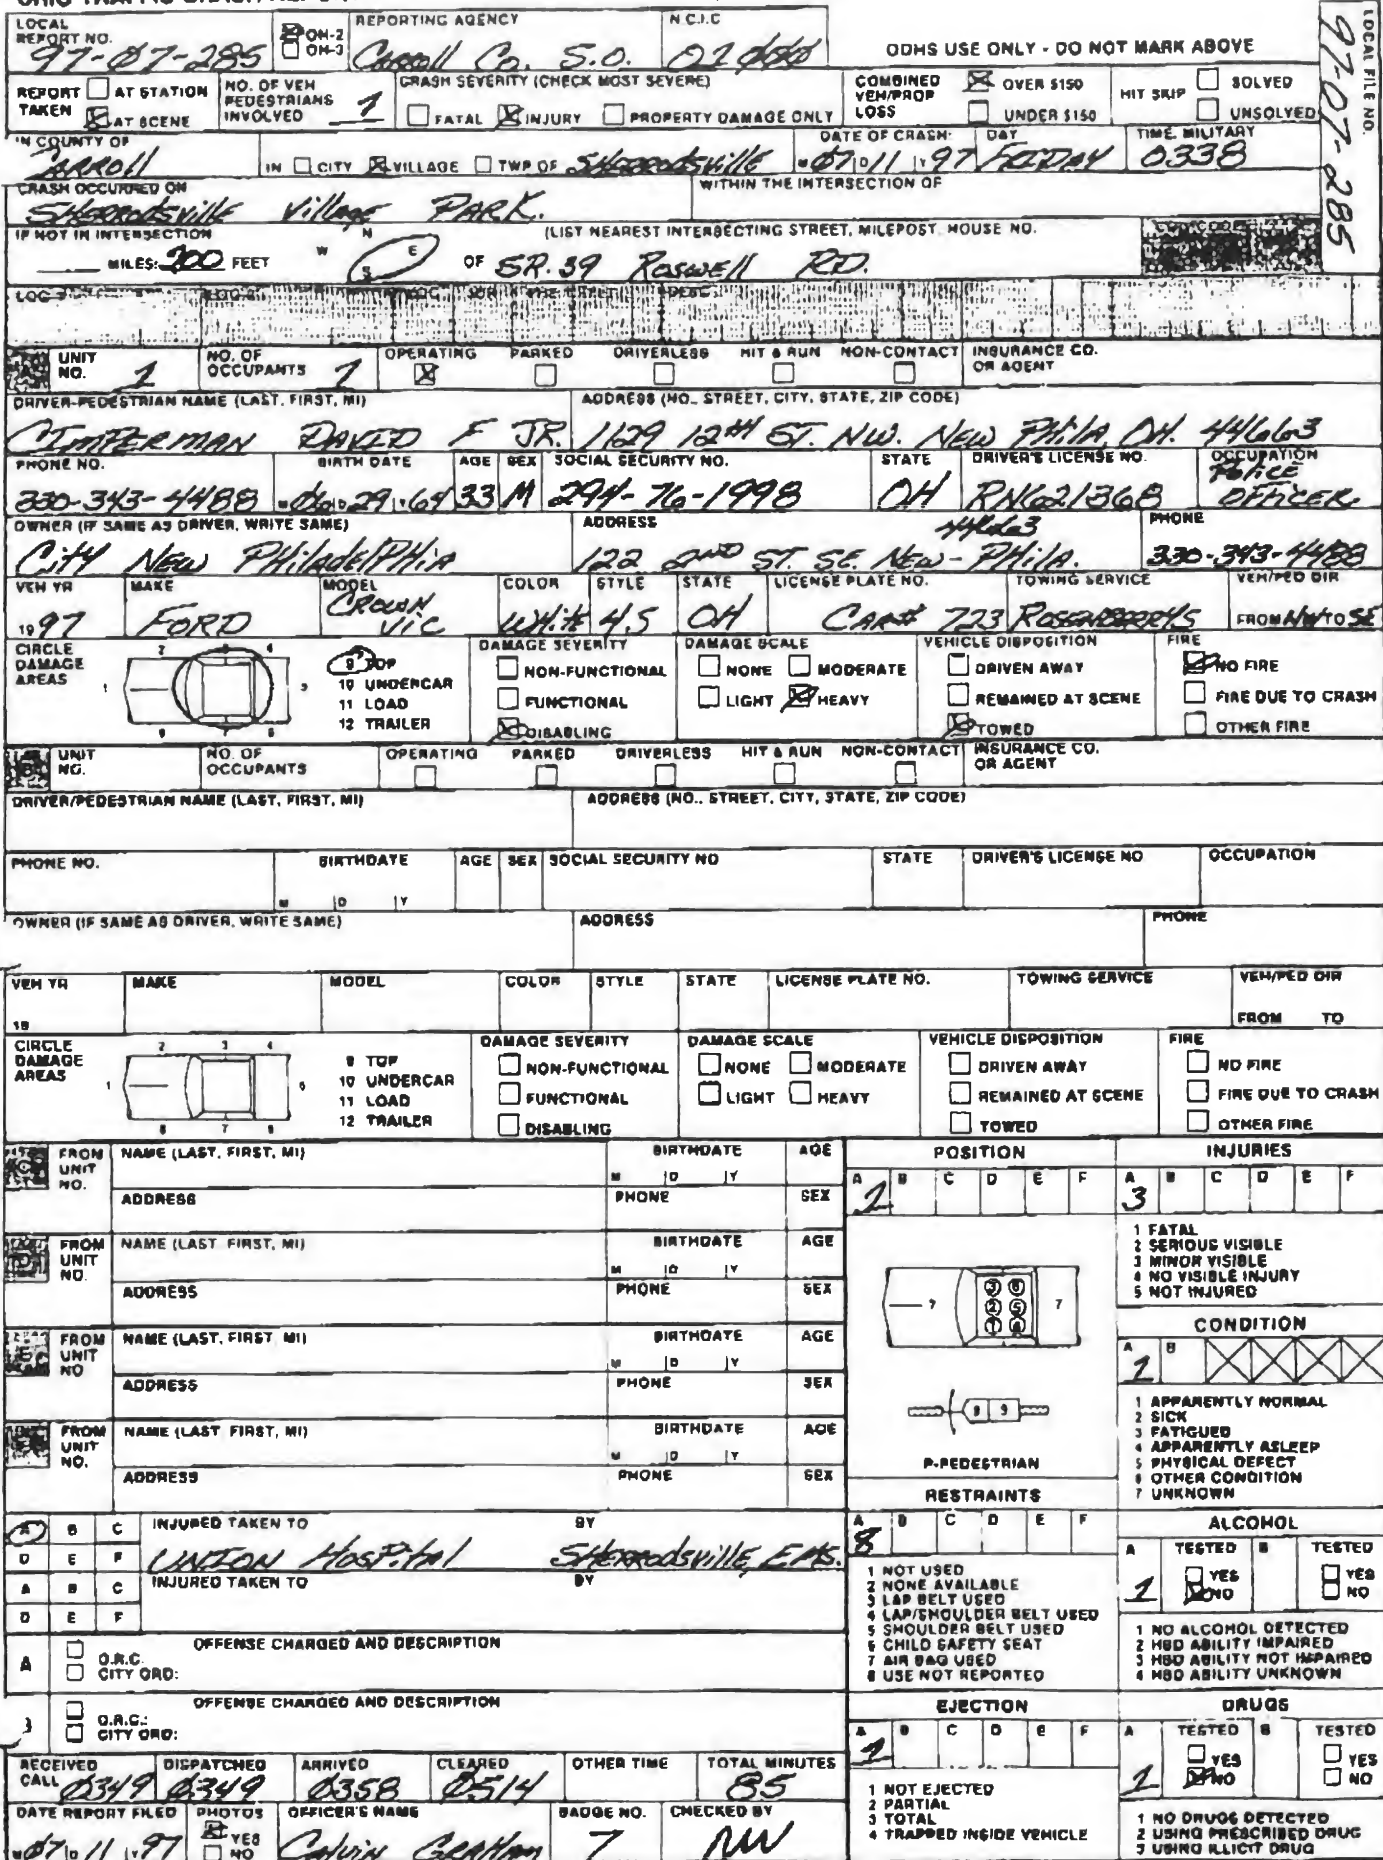 LOCAL REPORT NO. 97-07-285 OH-2 OH-3 REPORTING AGENCY Carroll Co. S.O. N.C.I.C.
ODHS USE ONLY - DO NOT MARK ABOVE
LOCAL FILE NO. 97-07-285
REPORT TAKEN AT STATION AT SCENE NO. OF VEH PEDESTRIANS INVOLVED 1 CRASH SEVERITY (CHECK MOST SEVERE) FATAL INJURY PROPERTY DAMAGE ONLY COMBINED VEH/PROP LOSS OVER $150 UNDER $150 HIT SKIP SOLVED UNSOLVED
IN COUNTY OF CARROLL IN CITY VILLAGE TWP OF SHERRODSVILLE DATE OF CRASH: M 07 D 11 Y 97 DAY FRIDAY TIME MILITARY 0338
CRASH OCCURRED ON SHERRODSVILLE Village PARK. WITHIN THE INTERSECTION OF
IF NOT IN INTERSECTION (LIST NEAREST INTERSECTING STREET, MILEPOST, HOUSE NO.
MILES: FEET N W E S OF SR. 39 Roswell RD.
UNIT NO. 1 NO. OF OCCUPANTS 1 OPERATING PARKED DRIVERLESS HIT & RUN NON-CONTACT INSURANCE CO. OR AGENT
DRIVER-PEDESTRIAN NAME (LAST, FIRST, MI) ADDRESS (NO., STREET, CITY, STATE, ZIP CODE)
CIMPERMAN DAVID F JR. 1129 12TH ST. NW. NEW PHILA, OH. 44663
PHONE NO. BIRTH DATE AGE SEX SOCIAL SECURITY NO. STATE DRIVER'S LICENSE NO. OCCUPATION
330-343-4488 M 06 D 29 Y 64 33 M 294-76-1998 OH RN621368 Police OFFICER.
OWNER (IF SAME AS DRIVER, WRITE SAME) ADDRESS 44663 PHONE
City NEW PHILADELPHIA 122 2ND ST. SE. NEW-PHILA. 330-343-4488
VEH YR MAKE MODEL COLOR STYLE STATE LICENSE PLATE NO. TOWING SERVICE VEH/PED DIR
1997 FORD CROWN VIC White 4S OH CAR# 723 ROSENBERRYS FROM NW TO SE
CIRCLE DAMAGE AREAS 9 TOP 10 UNDERCAR 11 LOAD 12 TRAILER DAMAGE SEVERITY NON-FUNCTIONAL FUNCTIONAL DISABLING DAMAGE SCALE NONE MODERATE LIGHT HEAVY VEHICLE DISPOSITION DRIVEN AWAY REMAINED AT SCENE TOWED FIRE NO FIRE FIRE DUE TO CRASH OTHER FIRE
UNIT NO. NO. OF OCCUPANTS OPERATING PARKED DRIVERLESS HIT & RUN NON-CONTACT INSURANCE CO. OR AGENT
DRIVER/PEDESTRIAN NAME (LAST, FIRST, MI) ADDRESS (NO., STREET, CITY, STATE, ZIP CODE)
PHONE NO. BIRTHDATE AGE SEX SOCIAL SECURITY NO STATE DRIVER'S LICENSE NO OCCUPATION
M D Y
OWNER (IF SAME AS DRIVER, WRITE SAME) ADDRESS PHONE
VEH YR MAKE MODEL COLOR STYLE STATE LICENSE PLATE NO. TOWING SERVICE VEH/PED DIR
19 FROM TO
CIRCLE DAMAGE AREAS 9 TOP 10 UNDERCAR 11 LOAD 12 TRAILER DAMAGE SEVERITY NON-FUNCTIONAL FUNCTIONAL DISABLING DAMAGE SCALE NONE MODERATE LIGHT HEAVY VEHICLE DISPOSITION DRIVEN AWAY REMAINED AT SCENE TOWED FIRE NO FIRE FIRE DUE TO CRASH OTHER FIRE
FROM UNIT NO. NAME (LAST, FIRST, MI) BIRTHDATE M D Y AGE
ADDRESS PHONE SEX
FROM UNIT NO. NAME (LAST, FIRST, MI) BIRTHDATE M D Y AGE
ADDRESS PHONE SEX
FROM UNIT NO NAME (LAST, FIRST, MI) BIRTHDATE M D Y AGE
ADDRESS PHONE SEX
FROM UNIT NO. NAME (LAST, FIRST, MI) BIRTHDATE M D Y AGE
ADDRESS PHONE SEX
POSITION
A B C D E F
1
P-PEDESTRIAN
INJURIES
A B C D E F
3
1 FATAL
2 SERIOUS VISIBLE
3 MINOR VISIBLE
4 NO VISIBLE INJURY
5 NOT INJURED
CONDITION
A B
1
1 APPARENTLY NORMAL
2 SICK
3 FATIGUED
4 APPARENTLY ASLEEP
5 PHYSICAL DEFECT
6 OTHER CONDITION
7 UNKNOWN
A B C D E F INJURED TAKEN TO UNION HOSPITAL BY SHERRODSVILLE, EMS.
A B C D E F INJURED TAKEN TO BY
A O.R.C. CITY ORD: OFFENSE CHARGED AND DESCRIPTION
O.R.C.: CITY ORD: OFFENSE CHARGED AND DESCRIPTION
RESTRAINTS
A B C D E F
8
1 NOT USED
2 NONE AVAILABLE
3 LAP BELT USED
4 LAP/SHOULDER BELT USED
5 SHOULDER BELT USED
6 CHILD SAFETY SEAT
7 AIR BAG USED
8 USE NOT REPORTED
ALCOHOL
A TESTED B TESTED
1 YES NO YES NO
1 NO ALCOHOL DETECTED
2 HBD ABILITY IMPAIRED
3 HBD ABILITY NOT IMPAIRED
4 HBD ABILITY UNKNOWN
EJECTION
A B C D E F
1
1 NOT EJECTED
2 PARTIAL
3 TOTAL
4 TRAPPED INSIDE VEHICLE
DRUGS
A TESTED B TESTED
1 YES NO YES NO
1 NO DRUGS DETECTED
2 USING PRESCRIBED DRUG
3 USING ILLICIT DRUG
RECEIVED CALL 0349 DISPATCHED 0349 ARRIVED 0358 CLEARED 0514 OTHER TIME TOTAL MINUTES 85
DATE REPORT FILED M 07 D 11 Y 97 PHOTOS YES NO OFFICER'S NAME Calvin Graham BADGE NO. 7 CHECKED BY NW